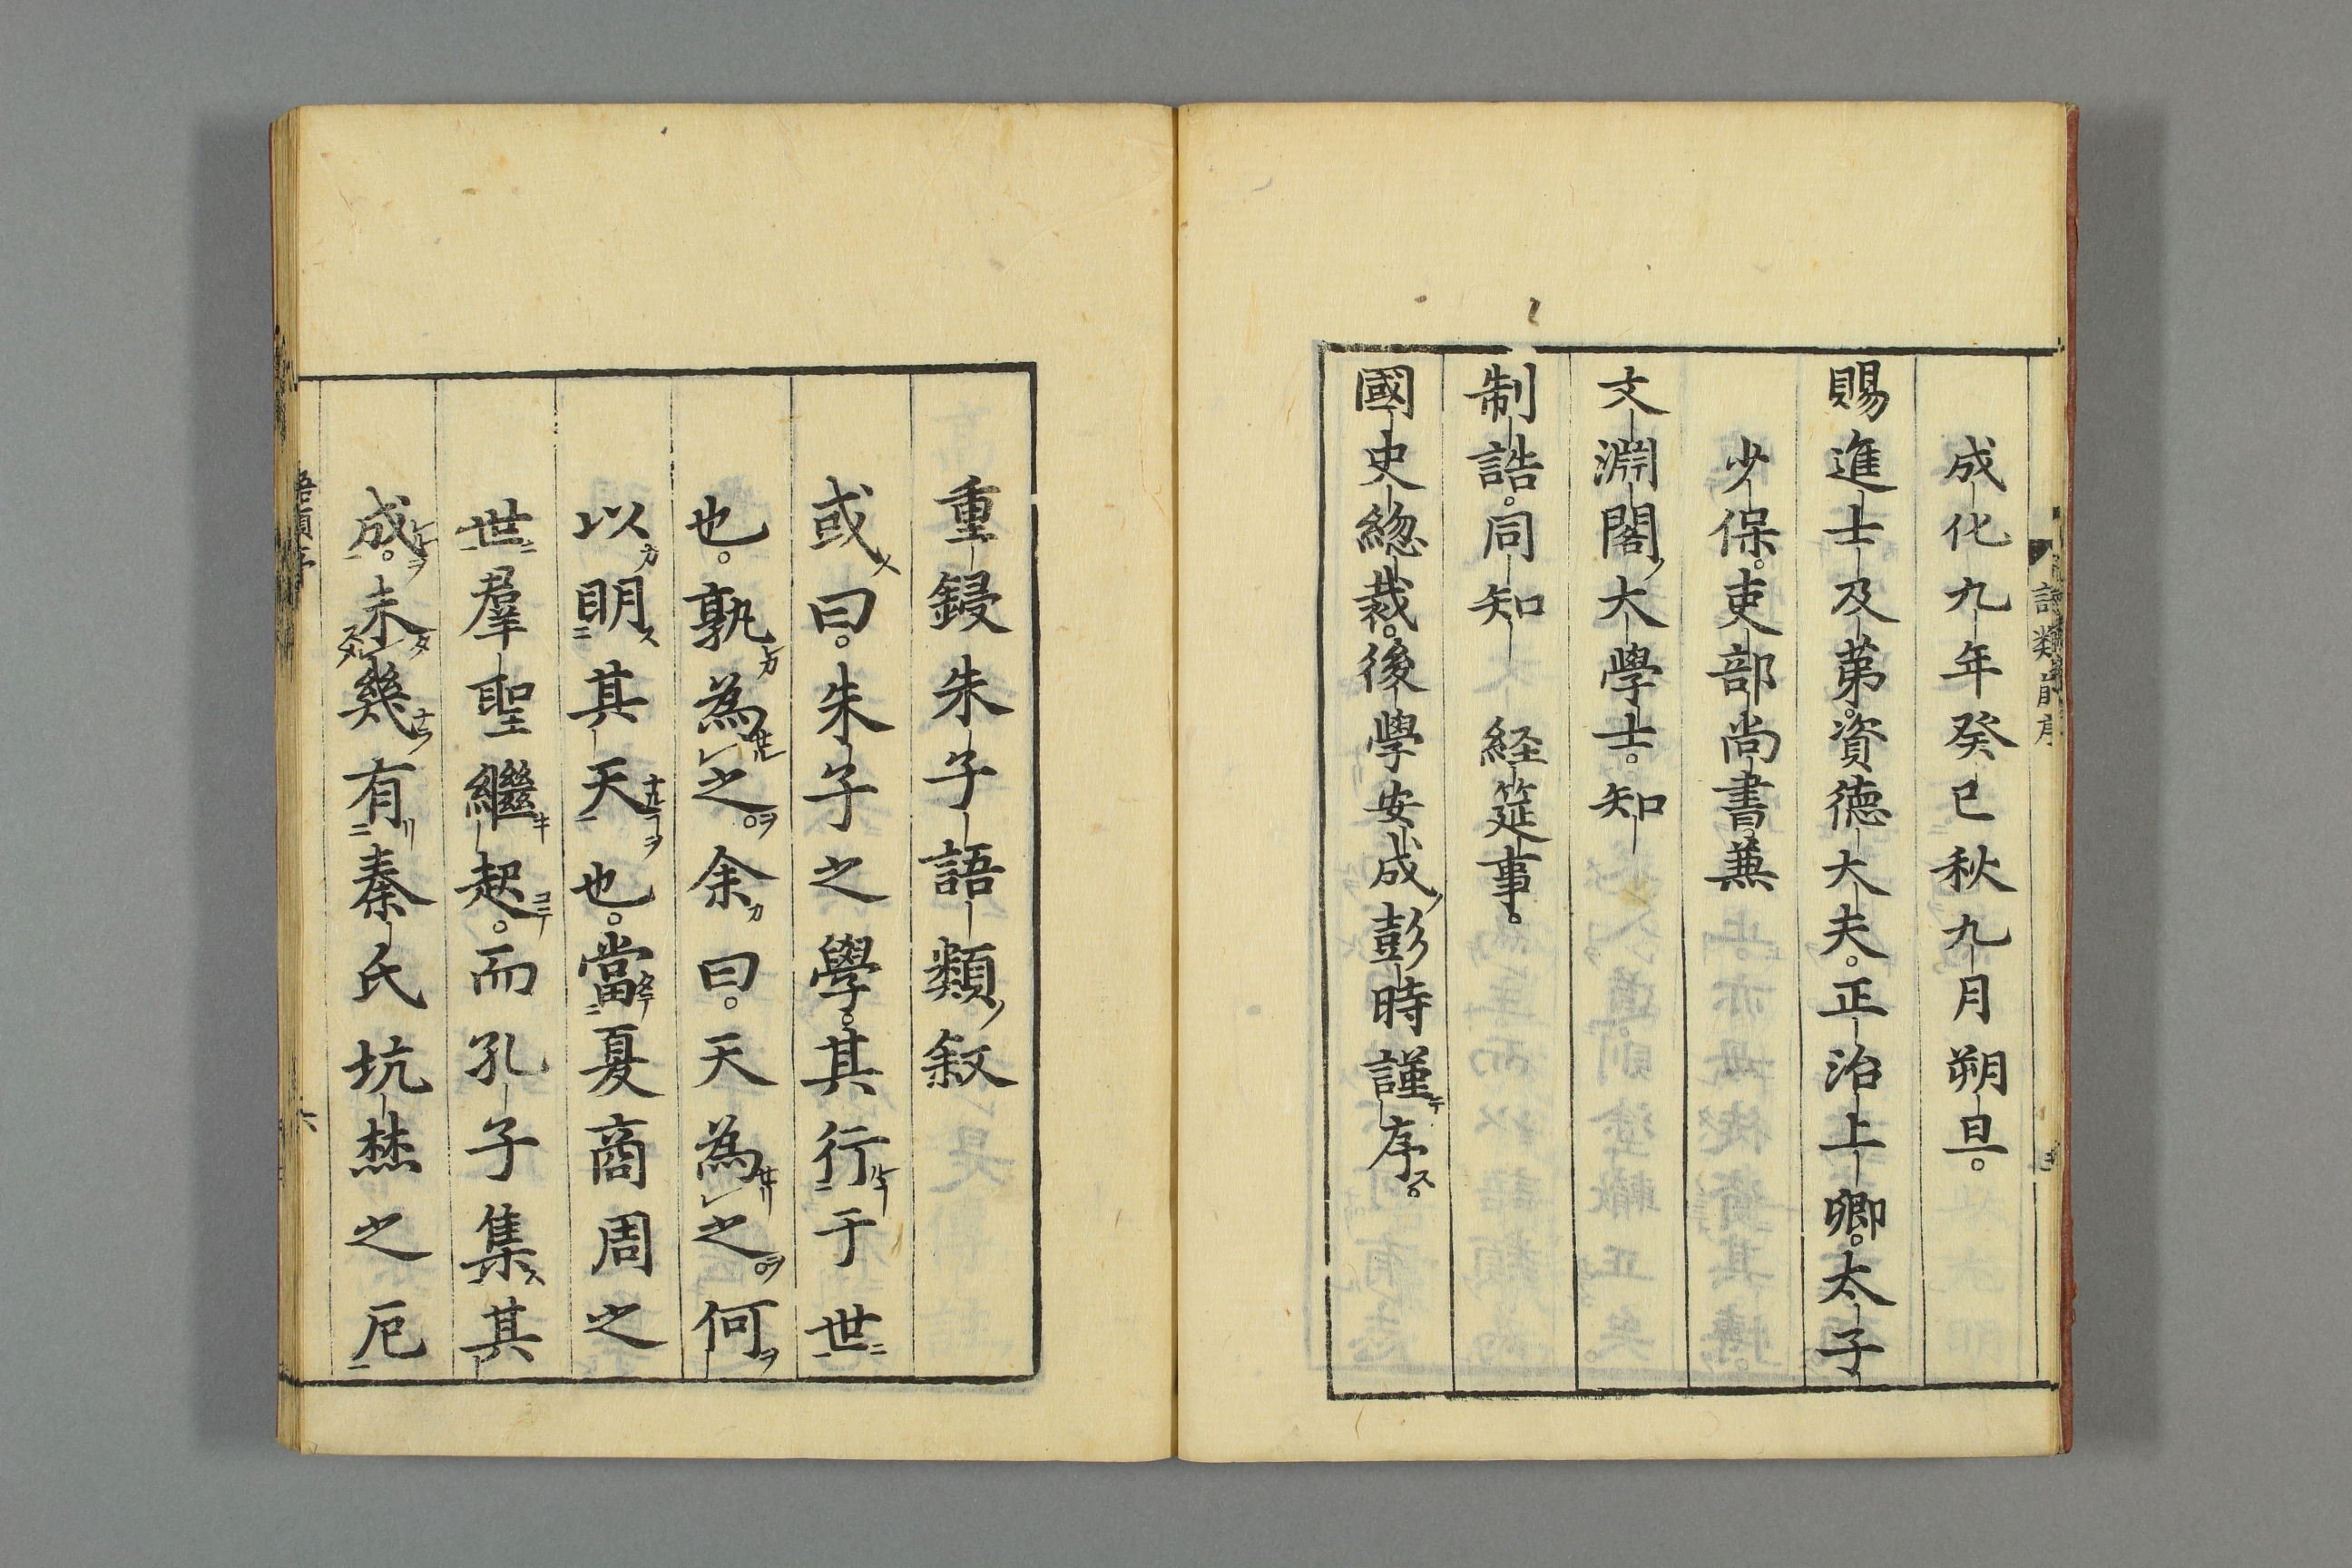 成化九年癸巳秋九月朔旦。
賜進士及第。資德大夫。正治上卿。太子
少保。吏部尚書。兼
文淵閣大學士。知
制誥。同知　経筵事。
國史総裁。後學安成彭時謹序。
重鋟朱子語類敘
或曰。朱子之學。其行于世
也。孰為之。余曰。天為之。何
以明其天也。當夏商周之
世羣聖繼起。而孔子集其
成。未幾有秦氏坑焚之厄